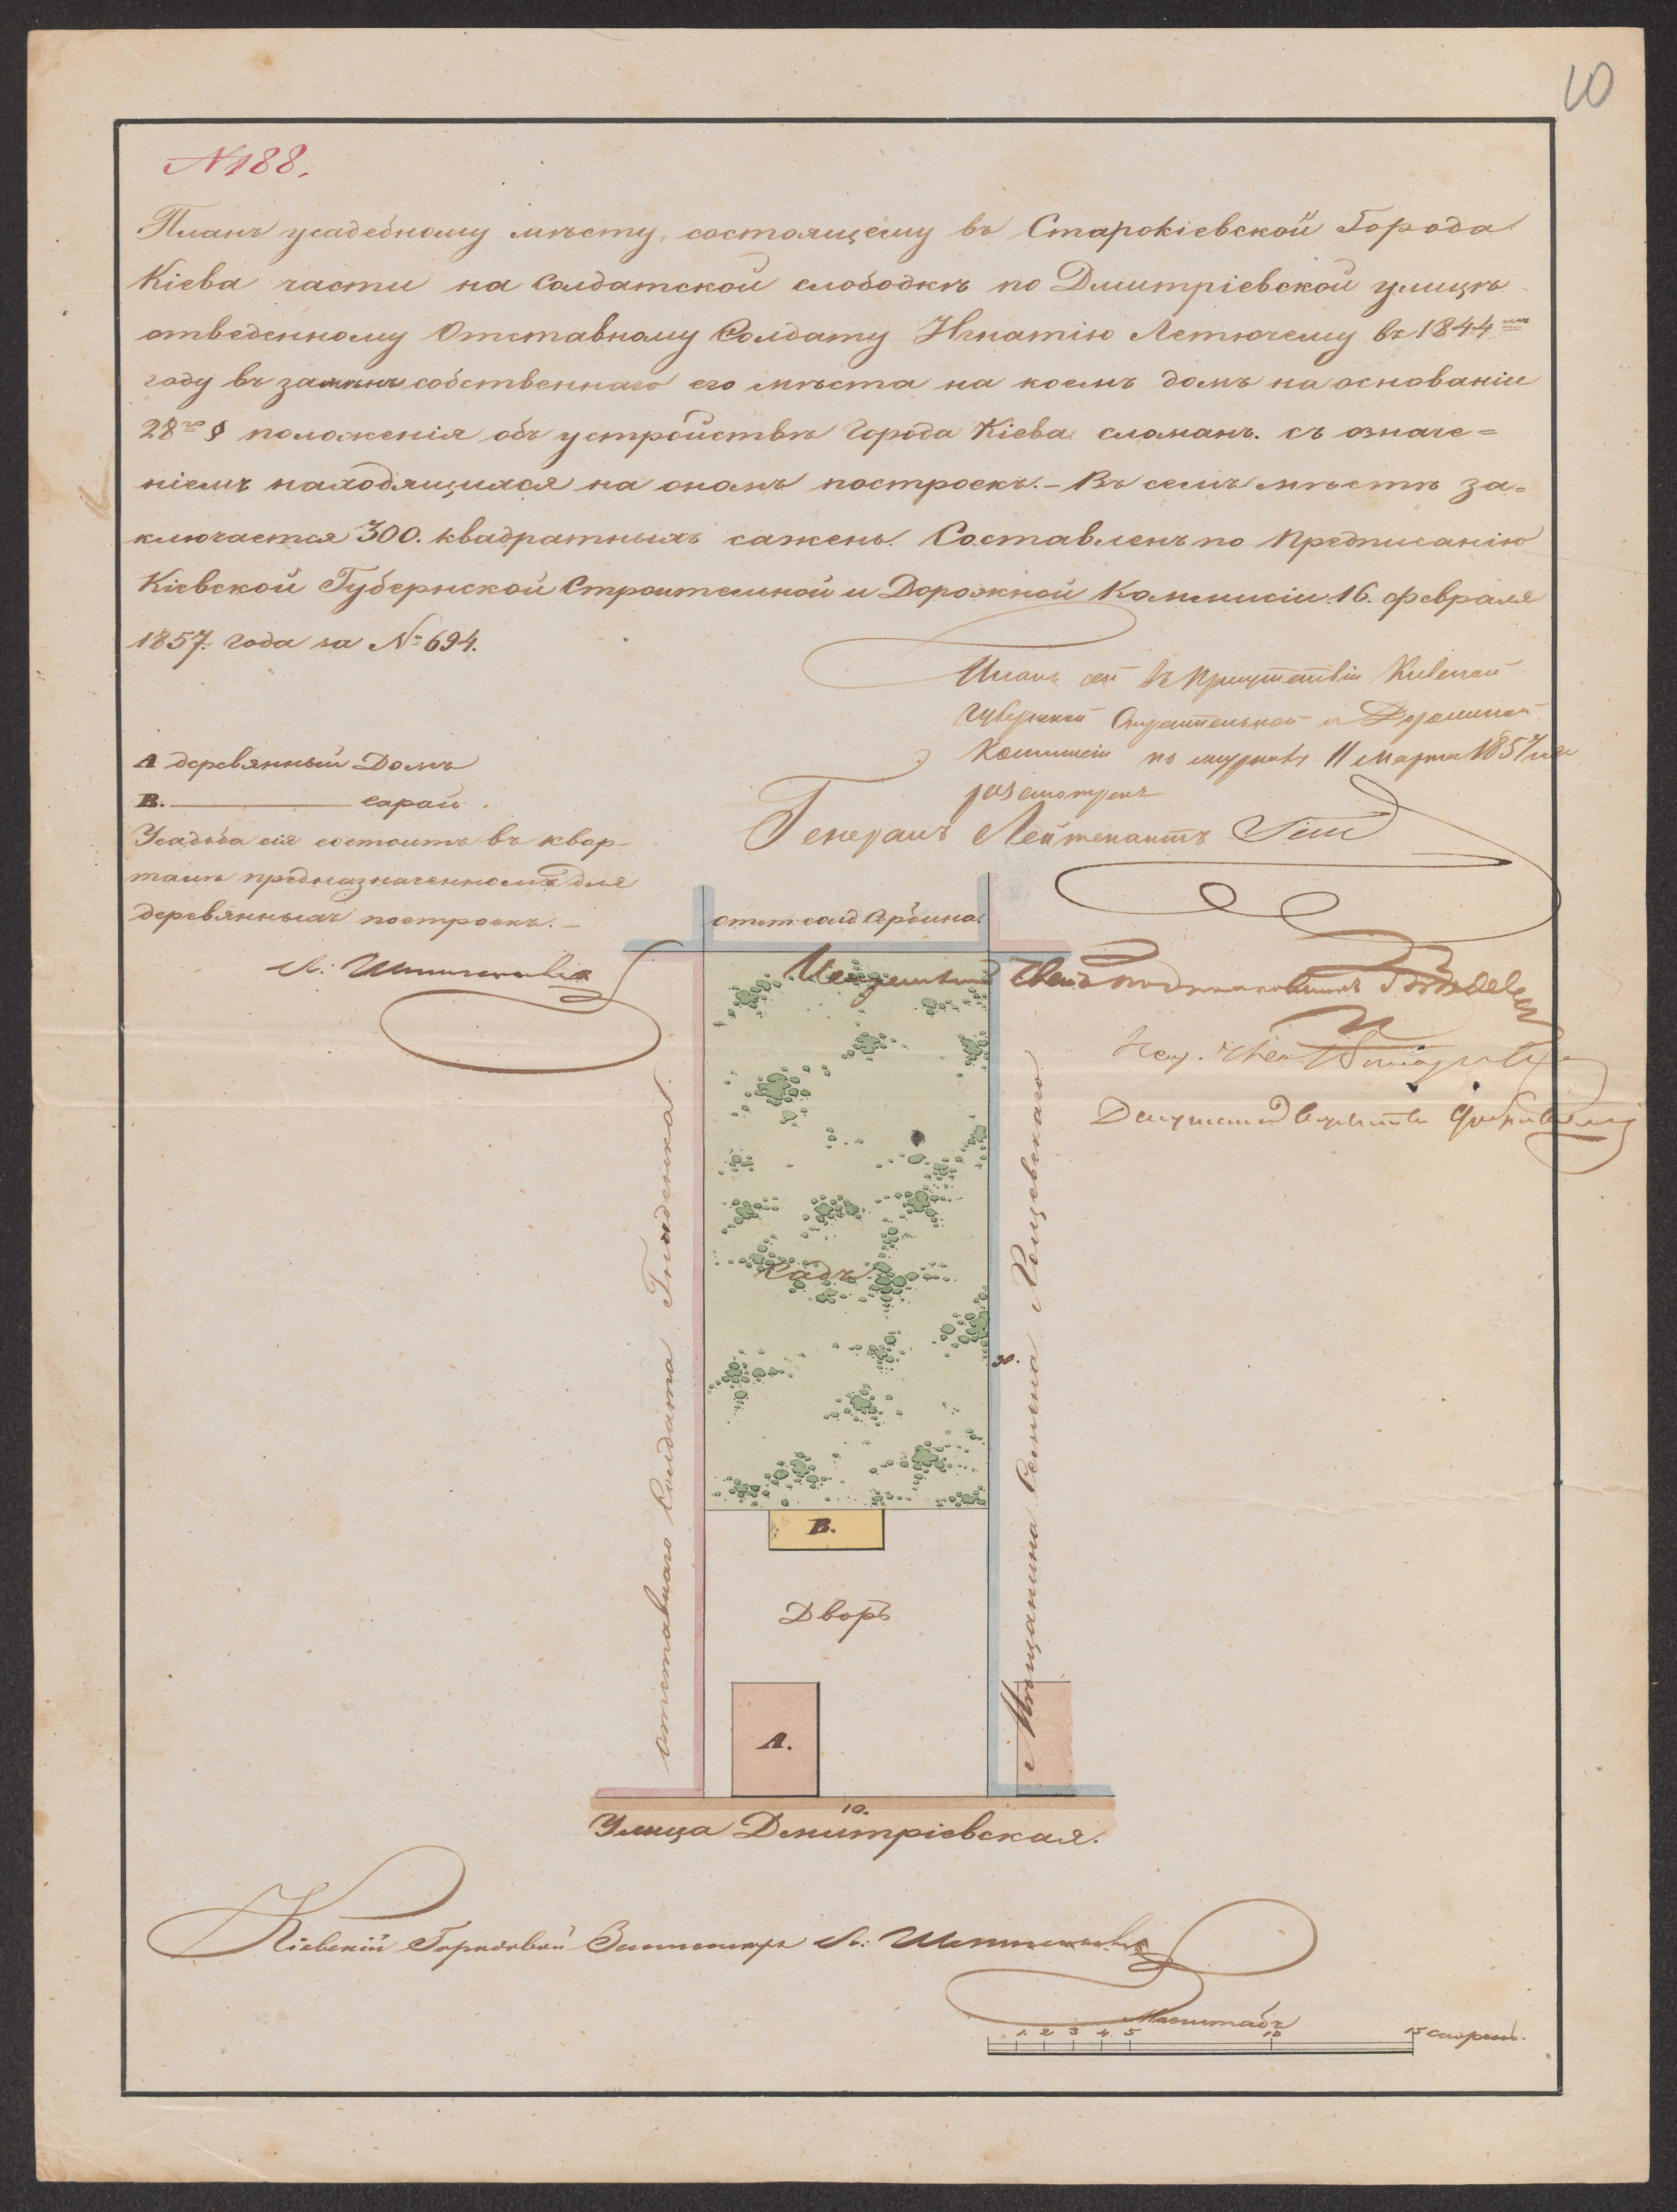 10
№ 188.
Планъ усадебному мѣсту, состоящему въ Старокіевской Города
Кіева части на Солдатской слободкѣ по Дмитріевской улицѣ
отведенному Отставному Солдату Игнатію Летючему въ 1844мъ
году въ замѣнъ собственнаго его мѣста на коемъ домъ на основаніи
28го § положенія объ устройствѣ Города Кіева сломанъ. съ означе=
ніемъ находящихся на ономъ построекъ.- Въ семъ мѣстѣ за=
ключается 300. квадратныхъ сажень. Составленъ по Предписанію
Кіевской Губернской Строительной и Дорожной Коммисіи 16. февраля
1857. года за № 694.
Планъ сей въ присутствіи Кіевской
Губернской Строительной и Дорожной
Коммисіи по журналу 11 Марта 1857 года
разсмотренъ
Генералъ Лейтенантъ
А деревянный Домъ
В. сарай.
Усадьба сія состоитъ въ квар-
талѣ предназначенномъ для
деревянныхъ построекъ. -
отст: солд Єрёмина.
отставнаго Солдата Гниденка.
Мѣщанина Семена Лощевскаго.
Садъ
30.
В.
Дворъ
А.
10.
Улица Дмитріевская.
Кіевскій Городовой Землемѣръ
Масштабъ
1 2 3 4 5 10 15 сажень.